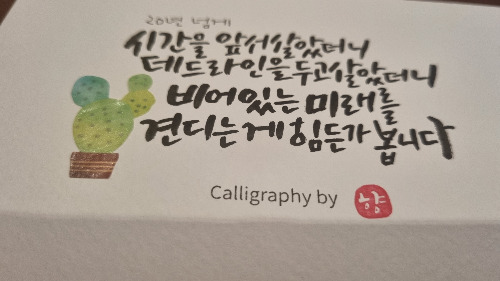 20년 넘게
시간을 앞서살았더니
데드라인을두고살았더니
비어있는 미래를
견디는게 힘든가 봅니다
Calligraphy by 향